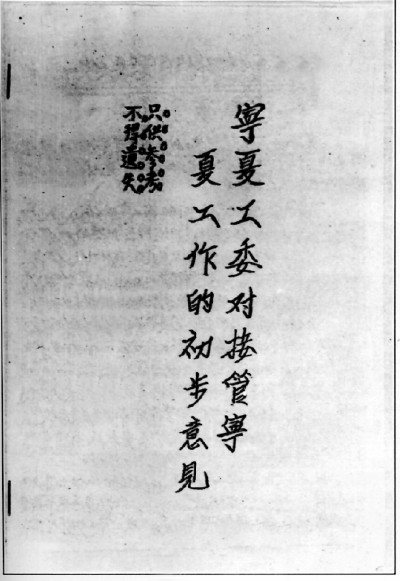 寧夏工委对接管寧
夏工作的初步意見
只供参考
不得遺失